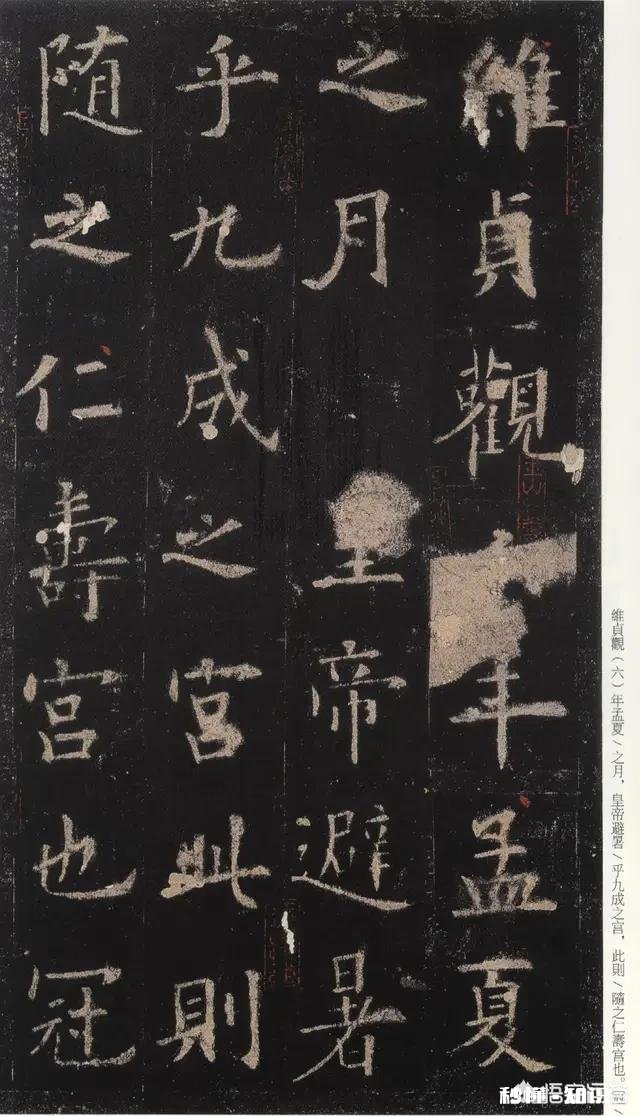 維貞觀年孟夏
之月皇帝避暑
乎九成之宮此則
随之仁壽宮也冠
維貞觀（六）年孟夏/之月，皇帝避暑/乎九成之宮，此則/隨之仁壽宮也。冠/